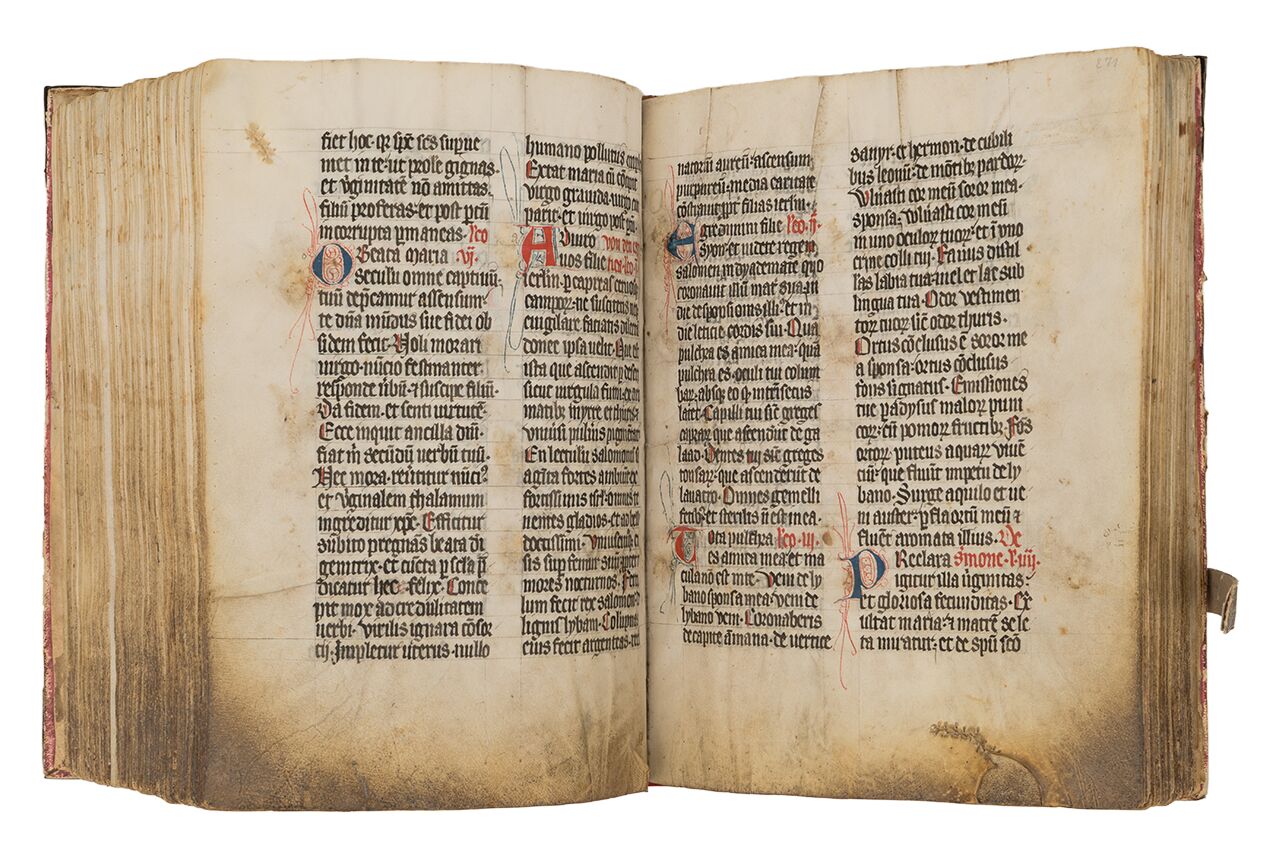 fiet hoc · qr sp̄c sc̄s supue
niet in te · ut prole gignas ·
et v̓ginitatē nō amittas ·
filiū proferas · et post ꝑtū
incorrupta ꝑmaneas · lc̄o
O Beata maria · vj ·
seculū omne captiuū ·
tuū dep̄camur assensum ·
te dn̄a mūdus sue fidei ob
sidem fecit · Noli morari
virgo · nūcio festinanter ·
responde v̓bū · ⁊ suscipe filiū ·
Da fidem · et senti virtutē ·
Ecce inquit ancilla dn̄i ·
fiat m̄ secūdū verbū tuū ·
Nec mora · reu̓titur nūci⁹
et v̓ginalem thalamum
ingreditur xp̄c · Efficitur
subito pregnās beata di
genitrix · et cūcta ꝑ secla p̄
dicatur hec felix · Conce
pit mox ad credulitatem
uerbi · virilis ignara cōsor
tij · Impletur uterus · nullo
humano pollutus
Extat maria cū
virgo grauida · virgo
parit · et virgo post
A Diuro
uos filie
ierlm̄ · ꝑ capreas ceruosq̓
camporꝝ · ne suscitetis
euigilare faciatis
donec ipsa uelit · Que est
ista que ascendit ꝑ
sicut virgula fumi · ex
matibꝫ mirre et thuris ·
vniuersi puluis
En lectulū salomonis
agīta fortes ambiūt ex
fortissimis isrl̄ · omnes
nentes gladios · et ad
doctissimi · Vniuscuiusqꝫ
sis sup femur suū ꝓpter
mores nocturnos · Fercu
lum fecit rex salomon · de
lignis lybani · Columpnas
eius fecit argenteas ·
natoriū aureū · ascensum
purpureū · media caritate
cōstrauit ꝓpt̓ filias ierlm̄ ·
E gredimini filie lc̄o · ij ·
syon · et uidete regem
salomon̄ ī dyademate quo
coronauit illum mat̓ sua in
die desponsionis illi⁹ · et in
die leticie cordis sui · Qua
pulchra es amica mea · qua
pulchra es · oculi tui colum
barꝝ · absqꝫ eo qd̓ int̓nsecus
latet · Capilli tui sic̄ greges
caprarꝝ que ascendūt de ga
laad · Dentes tui sic̄ greges
tonsarꝝ · que ascenderūt de
lauacro · Omnes gemelli
fetibꝫ · et sterilis n̄ est in ea ·
T Ota pulchra lc̄o · iij ·
es amica mea · et ma
cula nō est in te · Veni de ly
bano sponsa mea · veni de
lybano veni · Coronaberis
de capite amana · de vertice
sanyr · et hermon · de cubili
bus leonū · de mōtibꝫ pardorꝝ ·
Wlnasti cor meū soror mea ·
sponsa · Wlnasti cor meū
in uno oculorꝝ tuorꝝ · et ī vno
crine colli tui · Fauus distil
lās labia tua · mel et lac sub
lingua tua · Odor vestimen
torꝝ tuorꝝ sic̄ odor thuris ·
Ortus cōclusus ē soror me
a sponsa · ortus cōclusus
fons signatus · Emissiones
tue ꝑadysus malorꝝ puni
corꝝ · cū pomorꝝ fructibꝫ · Fōs
ortorꝝ · puteus aquarꝝ viuē
ciū · que fluūt impetu de ly
bano · Surge aquilo et ue
ni auster · ꝑfla ortū meū ⁊
fluēt aromata illius · De
P Reclara s̓mone · v · iiij ·
igitur illa v̓ginitas ·
et gloriosa fecunditas · Ex
ultat maria · ⁊ matrē se le
ta miratur · et de spū sc̄o
271